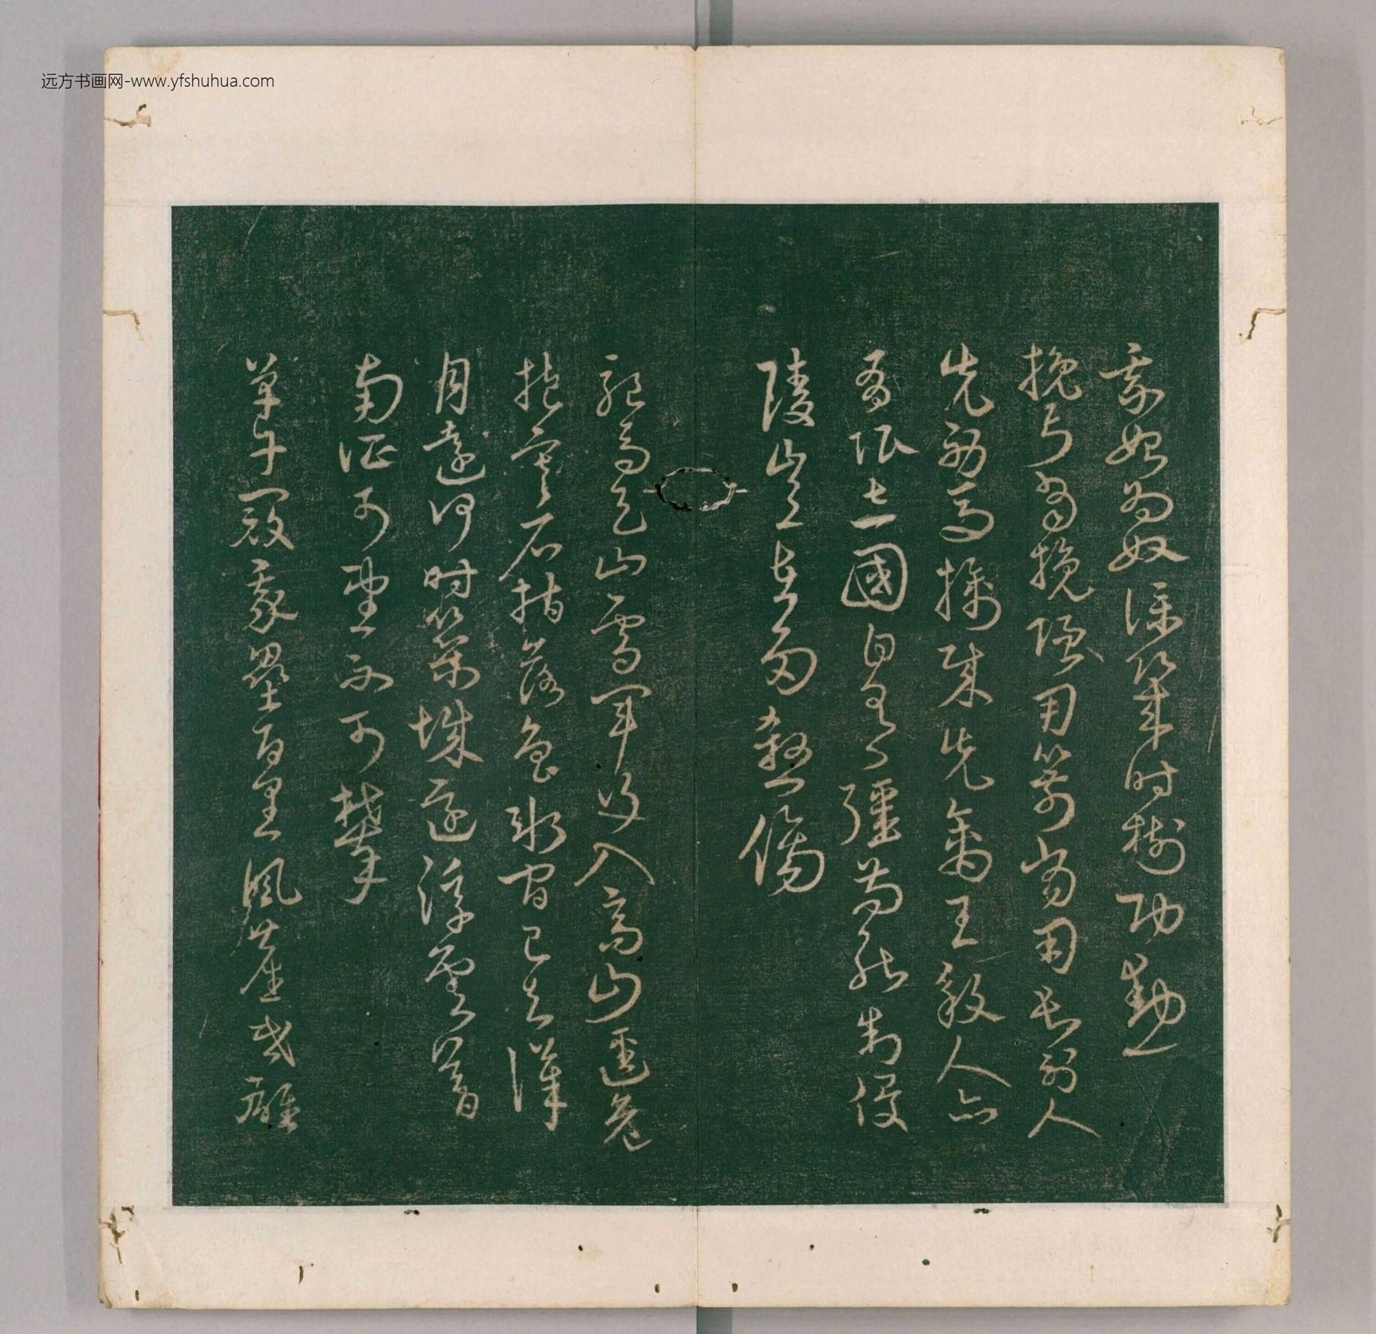 远方书画网-www.yfshuhua.com
我始為奴僕幾時樹功勳
挽弓當挽強用箭當用長射人
先射馬擒賊先擒王殺人亦
有限立國自有疆苟能制侵
陵豈在多殺傷
驅馬天雨雪軍行入高山逕危
抱寒石指落曾冰間已去漢
月遠何時築城還浮雲暮
南征可望不可攀
單于寇我壘百里風塵昏雄